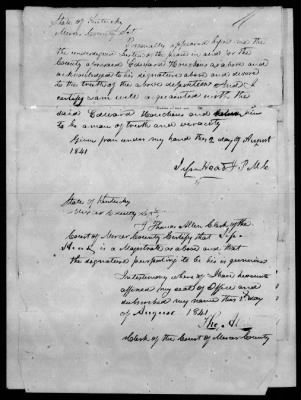 State of Kentucky
Mercer County Sct
Personally appeared before me the
the undersigned Justice of the peace in and for the
County aforesaid Edward Houchens as above and
acknowledged to his signature above and swore
to the truth of the above deposition And I
certify I am well acquainted with the
said Edward Houchens and him
to be a man of truth and veracity
Given from under my hand this 2 day of August
1841
J. P. M. C
State of Kentucky
Mercer County Sct
I Thomas Allen Clerk of the
Court of Mercer County Certify that
is a Magistrate as above and that
the signature purporting to be his is genuine
In testimony whereof I have hereunto
affixed my seal of Office and
subscribed my name this day
of August 1841
Tho. A
Clerk of the Court of Mercer County